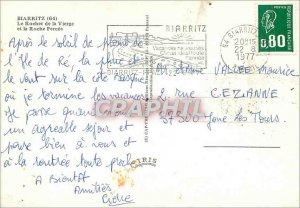 BIARRITZ (64)
Le Rocher de la Vierge
et la Roche Percée
BIARRITZ
64 BIARRITZ
20H15
1977
0,80
POSTES
FRANCE
Après le soleil de plomb de
l'Ile de Ré, la pluie et
le vent sur la côte basque
où je termine les vacances
Je passe quand même
un agréable séjour et
pense bien à vous et
à la rentrée toute proche
A Bientôt
Amitiés
VALLÉE Maurice
2, rue CEZANNE
37300 Joué les Tours.
IRIS
CPAPHIL.com